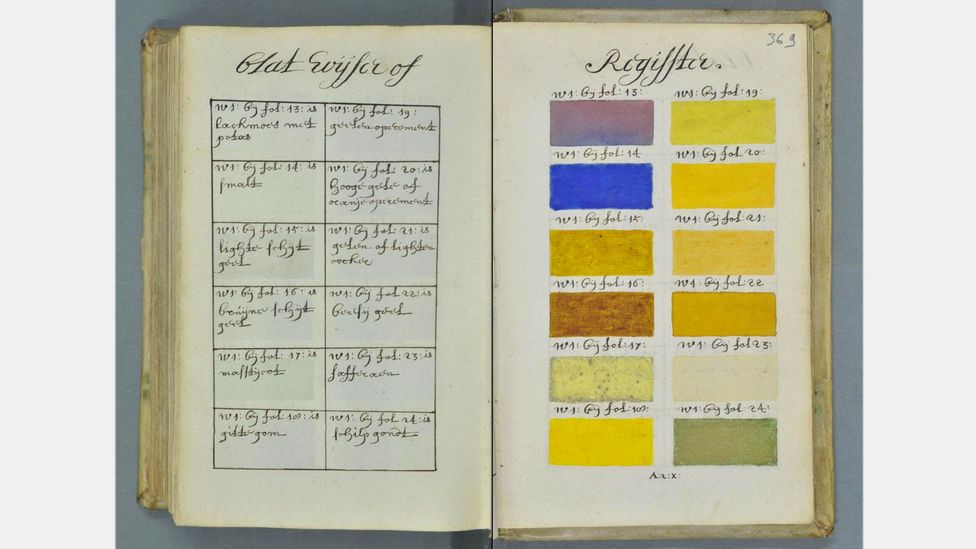 Blat Wijser of
N1: bij fol: 13: is
lackmoes met
potas
N1: bij fol: 19:
geelen operement
N1: bij fol: 14: is
smalt
N1: bij fol: 20: is
hooge gele of
oranje operement
N1: bij fol: 15: is
lighte schijt
geel
N1: bij fol: 21: is
gelen of lighten
oocker
N1: bij fol: 16: is
bruijne schijt
geel
N1: bij fol: 22: is
beesij geel
N1: bij fol: 17: is
masstijcot
N1: bij fol: 23: is
safferaen
N1: bij fol: 18: is
gitte gom
N1: bij fol: 24: is
schilp
369
Regisster.
N1: bij fol: 13:
N1: bij fol: 19:
N1: bij fol: 14
N1: bij fol: 20:
N1: bij fol: 15:
N1: bij fol: 21:
N1: bij fol: 16:
N1: bij fol: 22
N1: bij fol: 17:
N1: bij fol: 23:
N1: bij fol: 18:
N1: bij fol: 24: